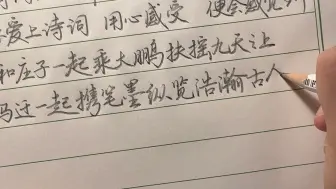 爱上诗词 用心感受 便会感觉到
和庄子一起乘大鹏扶摇九天让
马迁一起携笔墨纵览浩瀚古人